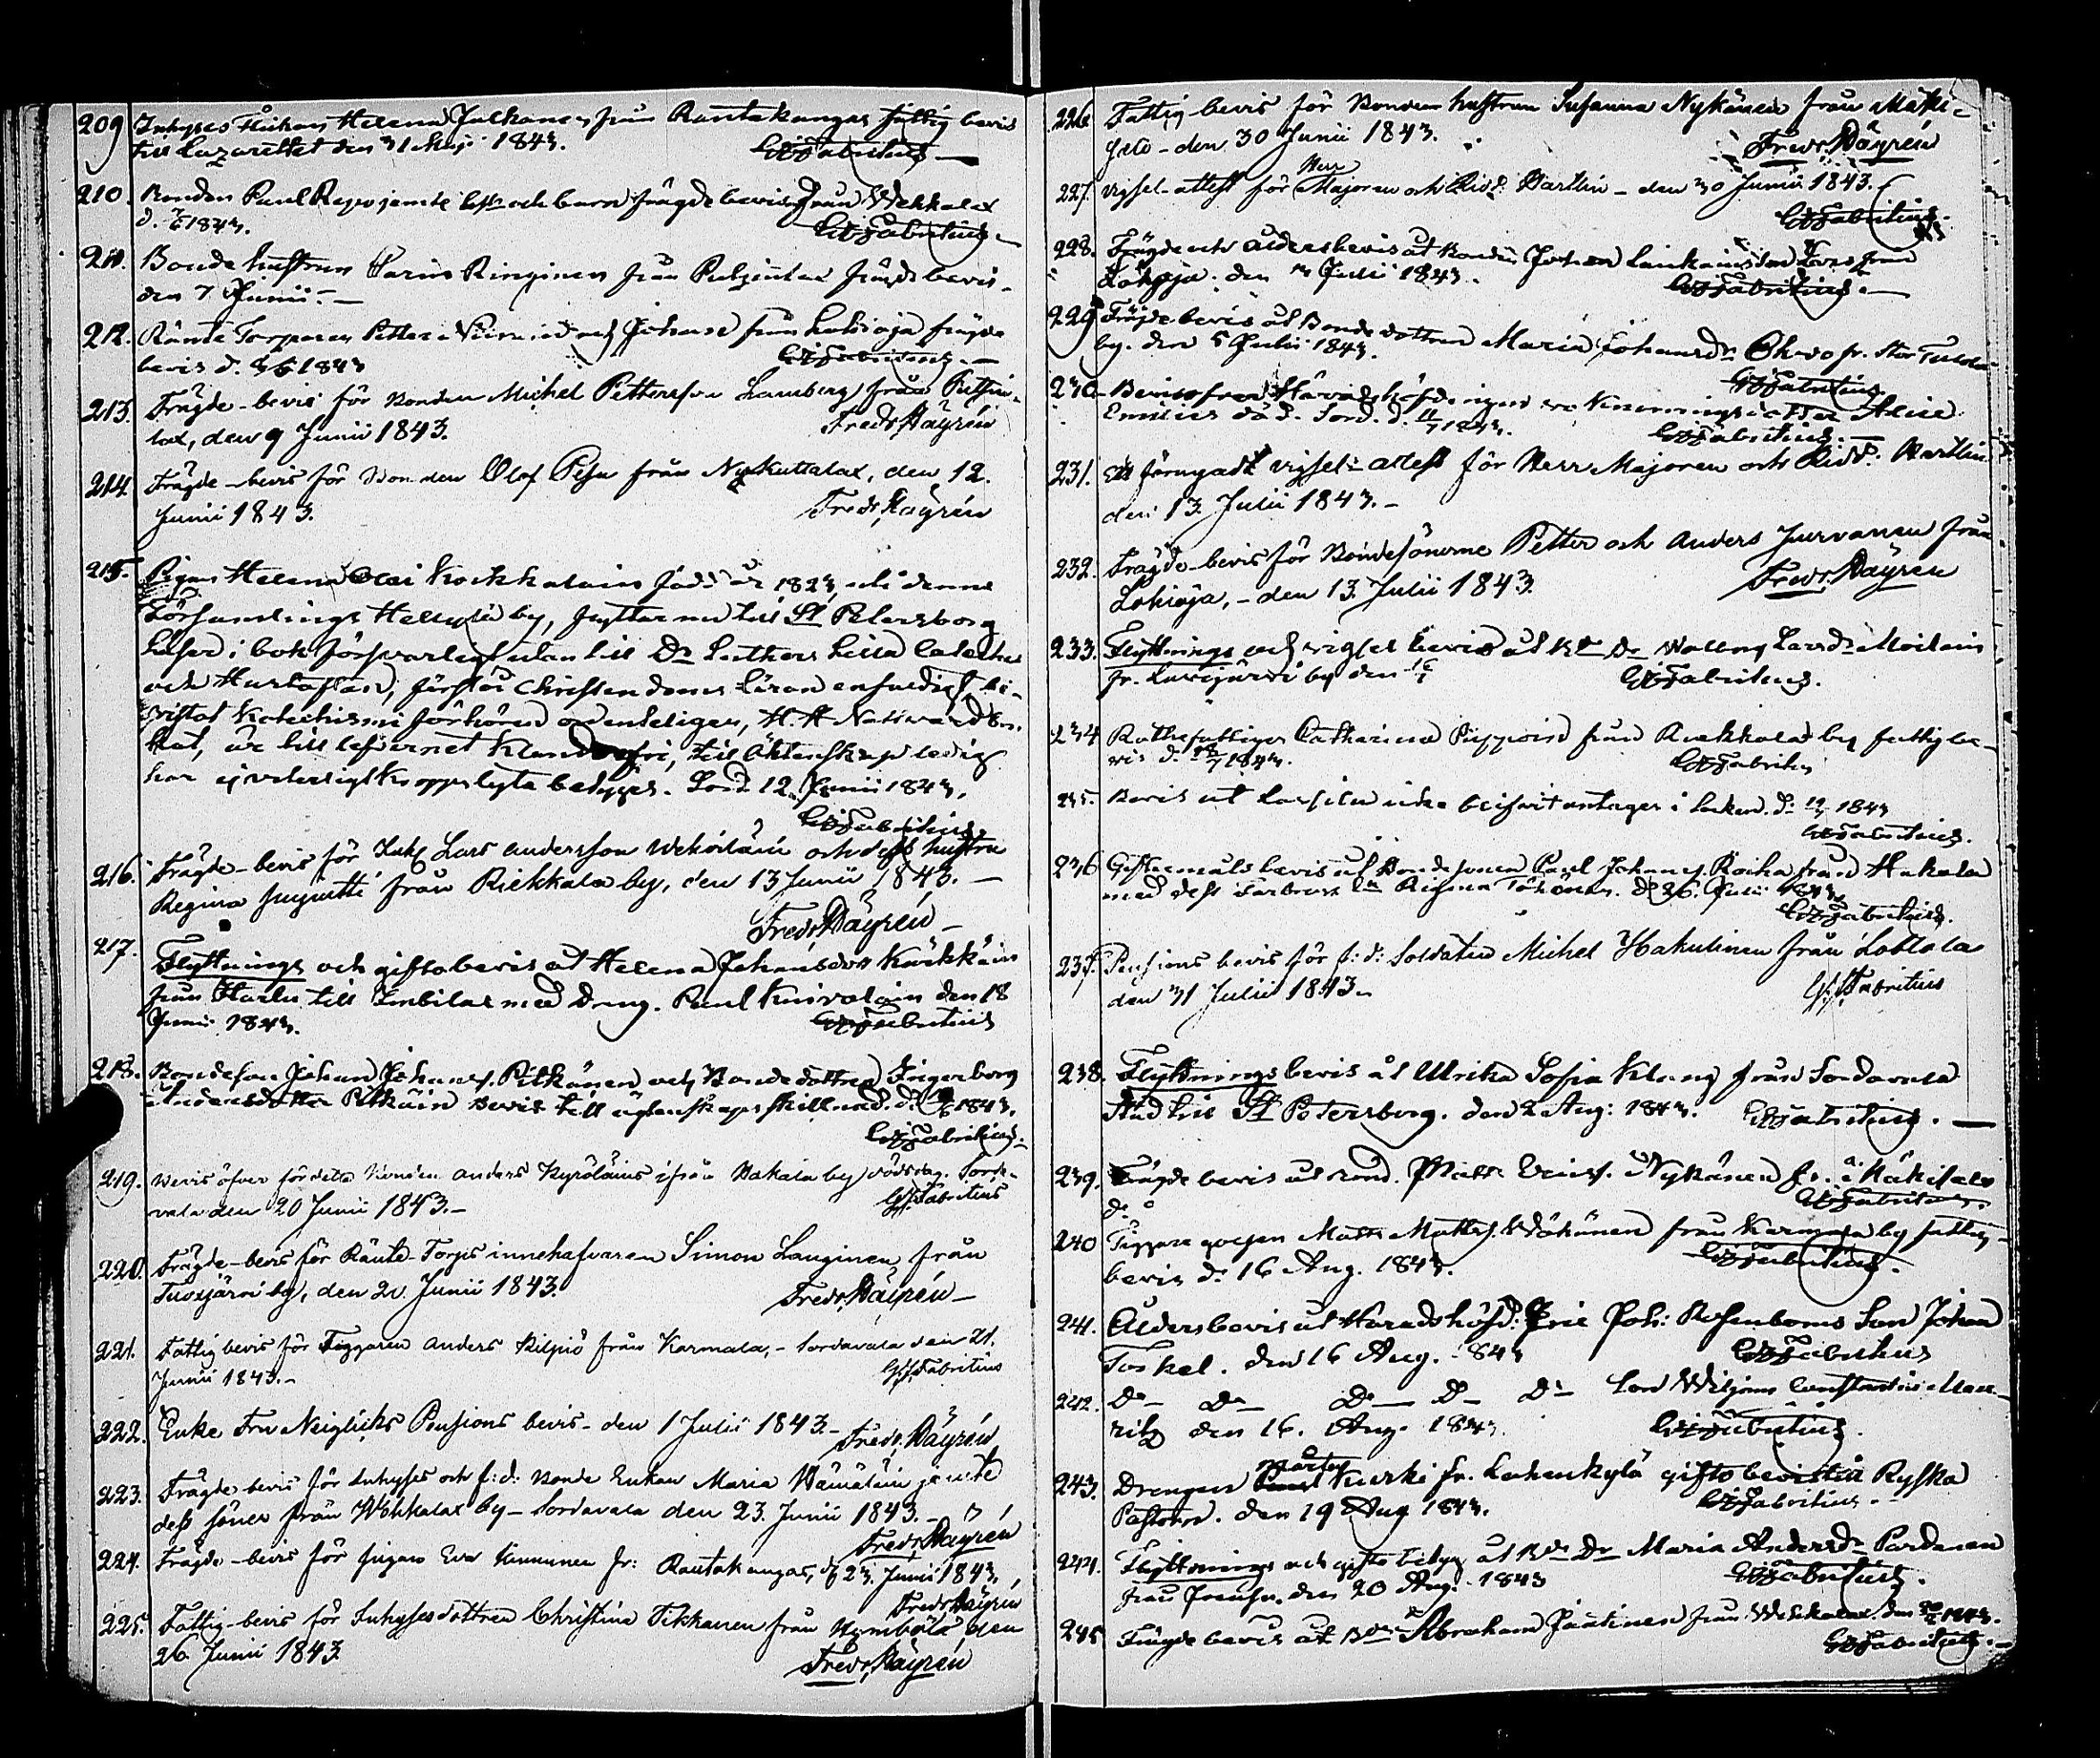 209 Inhyses Flickan Helena Julkanen från Rantakangas fattig bevis
till Lazarettet den 31 Maji 1843.
GJFabritius
210. Bonden Paul Repo jemte hu och barn frägde bevis från Wehkalax
d. 7/6 1843.
GJFabritius
211. Bonde hustrun Carin Ringinen från Puljinlax frägde bevis
den 7 Junii.
212. Ränte Torparen Petter Johans från Lohioja frägde
bevis d. 1843
GJFabritius
213. Frägde-bevis för Bonden Michel Pettersson Lamberg från
lax, den 9 Junii 1843.
Fredr. Häyrén
214. Frägde-bevis för Bonden Olof Pesu från Nykuttalax, den 12.
Junii 1843.
Fredr. Häyrén
215. Pigan Helena Olai Korkkalain född år 1823 uti denne
Församlings Hellylä by, flyttar nu till St Petersborg
läser i bok försvarligt utan till Dr Luthers Lilla Cateches
och Hustaflan, förstår Christendoms läran enfaldigt, be-
vistat Katechismi förhören ordenteligen, H. H. Nattward
kat, är till lefvernet klanderfri, till Äktenskap ledig
har ej vederligt koppor lyta betygas. Sord. 12 Junii 1843.
GJFabritius
216. Frägde-bevis för Inh Lars Andersson Wekoilain och dess hustru
Regina från Riekkala by, den 13 Junii 1843.
Fredr. Häyrén
217. Flyttnings och giftobevis åt Helena Johansdott Kärkkäin
från Harlu till Imbilax med Dreng. Paul Kuivalain den 18
Junii 1843.
GJFabritius
218. Bondeson Johan Johans. Pitkänen och Bondedottren Ingeborg
Andersdotter Pitkäin Bevis till äktenskaps skillnad. d. 1843.
GJFabritius
219. Bevis öfver för detta Bonden Anders Kyröläins ifrån Hakala by dödsdag. Sorda-
vala den 20 Junii 1843.
GJFabritius
220. Frägde-bevis för Ränte-Torps innehafvaren Simon Lauginen från
Tuoxjärvi by, den 21. Junii 1843.
Fredr. Häyrén
221. Fattig bevis för Tiggaren Anders Kilpiö från Karmala, Sordavala den 21.
Junii 1843.
GJFabritius
222. Enke Fru Neiglicks Pensions bevis den 1 Julii 1843.
Fredr. Häyrén
223. Frägde-bevis för Inhyses och f: d: Bonde Enkan Maria Hämäläin jemte
dess söner från Wehkalax by Sordavala den 23. Junii 1843.
Fredr. Häyrén
224. Frägde-bevis för pigan Eva Kinnunen fr: Rantakangas, d. 23. Junii 1843.
Fredr. Häyrén
225. Fattig-bevis för Inhysesdottren Christina Tikkanen från Hymbölä den
26 Junii 1843
Fredr. Häyrén
226 Fattig bevis för Bonden hustrun Susanna Nykänen från Mäki-
salo den 30 Junii 1843.
Fredr. Häyrén
227. Vigsel-attest för Herr Majoren och Ridd: Hartlin den 30 Junii 1843.
GJFabritius
228. Frägde och åldersbevis åt Bonden Johan Son Lars från
den Julii 1843.
GJFabritius
229 Frägde bevis åt Bonde dottren Maria Johansdr fr. Stor
by. den 5 Julii 1843.
GJFabritius
230 Bevis
Emilies död. Sord. d. 11/7 1843.
GJFabritius
231. Ett förnyadt vigsel-attest för Herr Majoren och Ridd: Hartlin
den 13. Julii 1843.
232. Frägde-bevis för Bondesönerne Petter och Anders Jurvanen från
Lohioja, den 13. Julii 1843.
Fredr. Häyrén
233. Flyttnings och vigsel bevis åt Bde Dr Walborg Larsdr Moilain
fr. by den
GJFabritius
234 Rothefattigen Catharina från Riekkala by fattig be-
vis d. 18/7 1843.
GJFabritius
235. Bevis at antagas i d. 1843
GJFabritius
236 Giftermåls bevis åt Bondesonen Paul Johans. Roiha från Hakala
med dess Regina d. 26. Julii 1843.
GJFabritius
237. Pensions bevis för f: d: Soldaten Michel Hakulinen från
den 31 Julii 1843.
GJFabritius
238. Flyttnings bevis åt Ulrika Sofia Klang från Sordavala
Stad till St Petersborg. den 2 Aug: 1843.
GJFabritius
239. Frägde bevis åt Bond. Matts Nykänen fr. Mäkisalo
d.
GJFabritius
240 Tiggare gossen Matts Matts. Wäkänen från Karmala by fattig
bevis d. 16 Aug. 1843.
GJFabritius
241. Åldersbevis åt Häradshöfd: Eric Joh: Rosenboms Son Johan
Torkel. den 16 Aug. 1843
GJFabritius
242. Do Do Do Do Do Son Wiljam Constantin Mau-
ritz den 16. Aug. 1843.
GJFabritius
243. Drengen Mårten Kurki fr. Lahenkylä gifto bevis till Ryska
Pastorn. den 19 Aug 1843.
GJFabritius
244. Flyttnings och gifto betyg åt Bde Dr Maria Andersdr Pardanen
från den 20 Aug. 1843
GJFabritius
245 Frägde bevis åt Bdn Abraham från Wehkalax den 1843.
GJFabritius